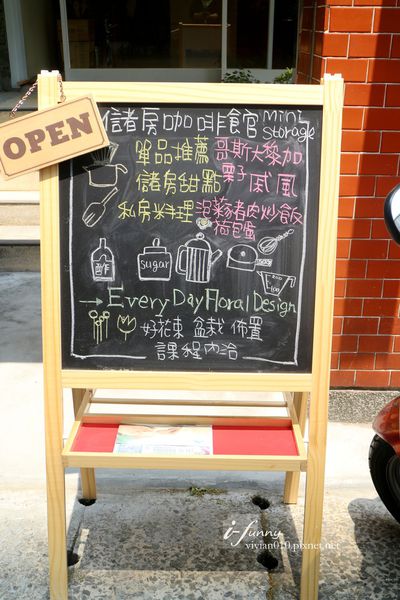 OPEN
儲房咖啡館 Mini Storage
單品推薦 哥斯大黎加
儲房甜點 栗子戚風
私房料理 泡菜豬肉炒飯
荷包蛋
酢
sugar
→ Every Day Floral Design
好花束 盆栽 佈置
課程內洽
i-funny
vivian019.pixnet.net